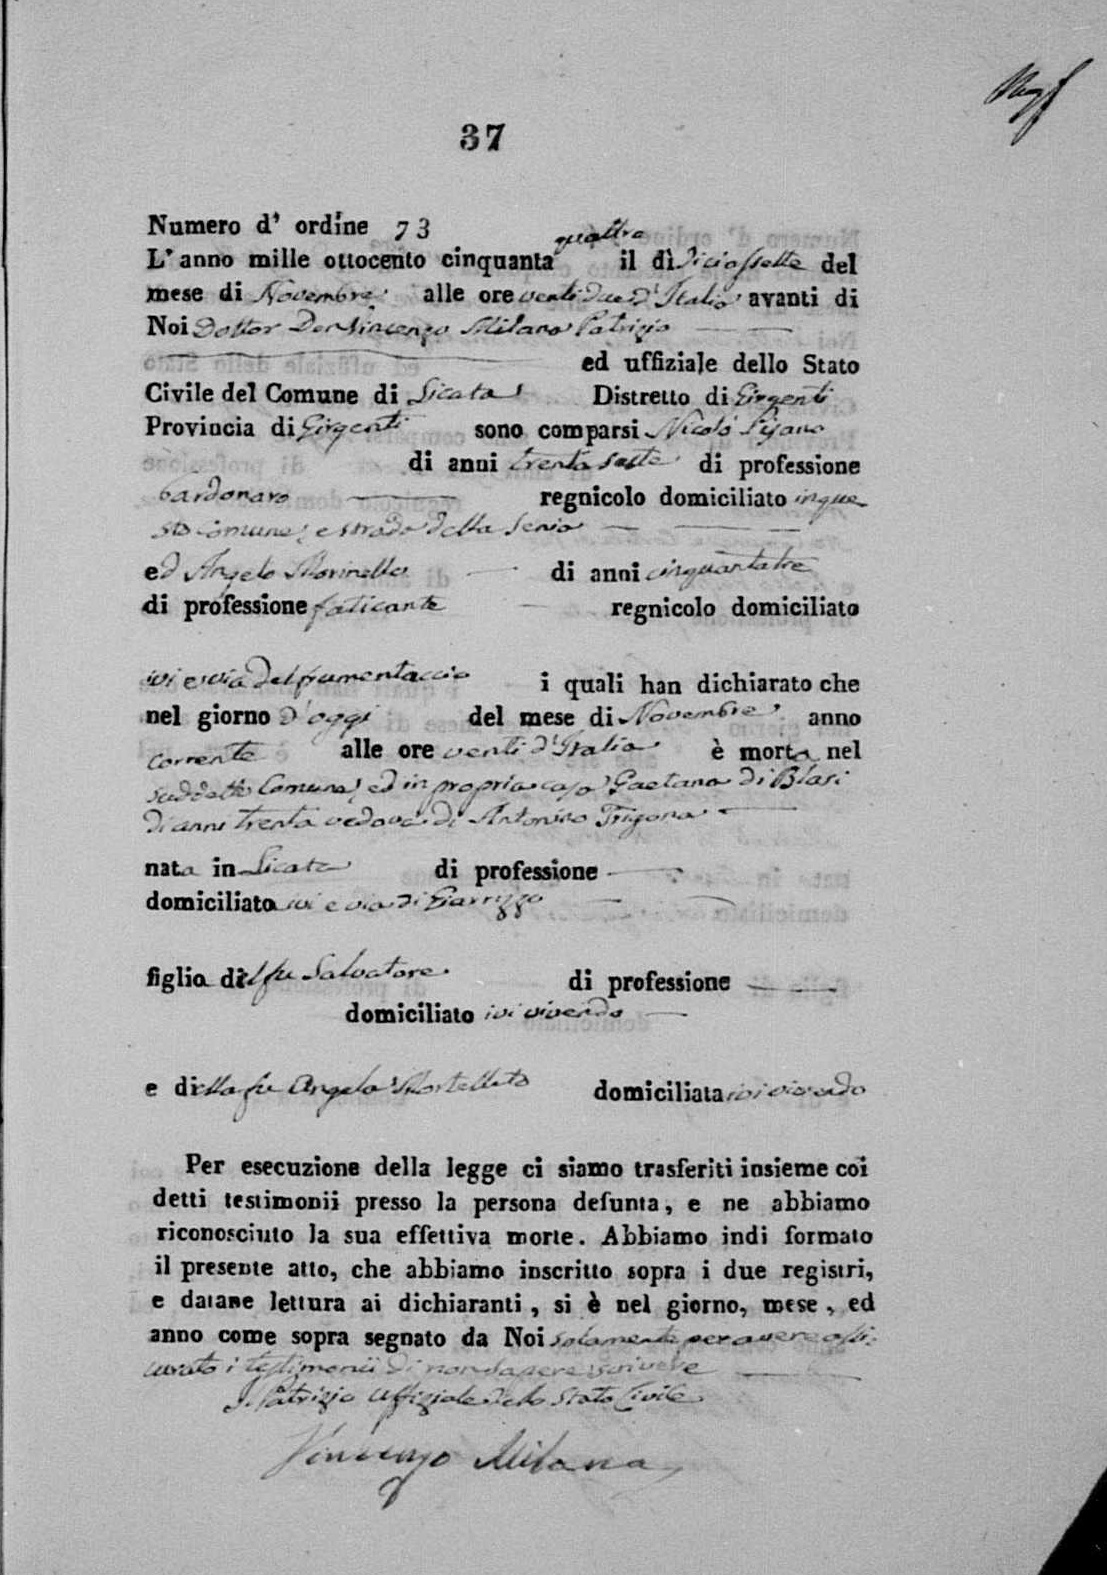 37
Numero d' ordine 73
quattro
L'anno mille ottocento cinquanta il dì diciassette del
mese di Novembre alle ore venti due d'Italia avanti di
Noi Dottor Don Vincenzo Milana Patrizio
ed uffiziale dello Stato
Civile del Comune di Licata Distretto di Girgenti
Provincia di Girgenti sono comparsi Nicolò
di anni trenta sette di professione
bardonaro regnicolo domiciliato in que
sto Comune, e strada della
ed Angelo Morinello di anni cinquantatre
di professione faticante regnicolo domiciliato
ivi e via del frumentaccio i quali han dichiarato che
nel giorno d'oggi del mese di Novembre anno
corrente alle ore venti d'Italia è morta nel
suddetto Comune, ed in propria casa Gaetana di Blasi
di anni trenta vedova di Antonino Trigona
nata in Licata di professione
domiciliata ivi e via di Giarrizzo
figlia del fu Salvatore di professione
domiciliato ivi vivendo
e della fu Angela Mortelluto domiciliata ivi vivendo
Per esecuzione della legge ci siamo trasferiti insieme coi
detti testimonii presso la persona defunta, e ne abbiamo
riconosciuto la sua effettiva morte. Abbiamo indi formato
il presente atto, che abbiamo inscritto sopra i due registri,
e datane lettura ai dichiaranti, si è nel giorno, mese, ed
anno come sopra segnato da Noi solamente per avere assi
curato i testimonii di non sapere scrivere
Il Patrizio Uffiziale dello Stato Civile
Vincenzo Milana